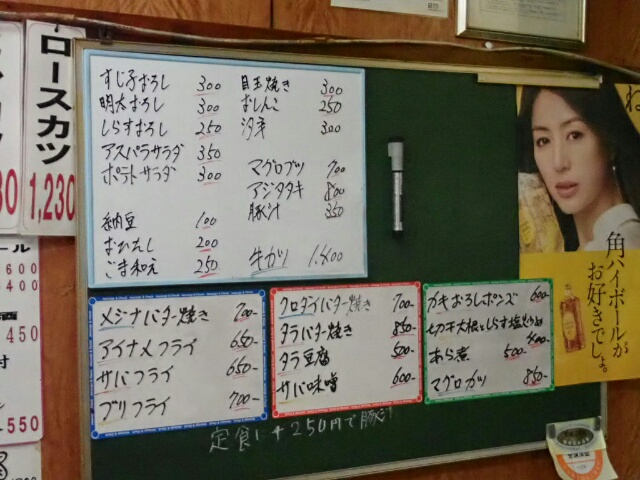 ロースカツ
1,230
すじ子おろし 300
明太おろし 300
しらすおろし 250
アスパラサラダ 350
ポテトサラダ 300
納豆 100
おひたし 200
ごま和え 250
目玉焼き 300
おしんこ 250
300
マグロブツ 700
アジタタキ 800
豚汁 350
牛カツ 1.400
メジナバター焼き 700-
アイナメフライ 650-
サバフライ 650-
ブリフライ 700-
クロダイバター焼き 700-
タラバター焼き 850-
タラ豆腐 500-
サバ味噌 600-
カキおろしポンズ 600-
切干大根としらす
400
あら煮 500-
マグロカツ 850-
定食に+250円で豚汁
角ハイボールが
お好きでしょ。
600
400
450
550